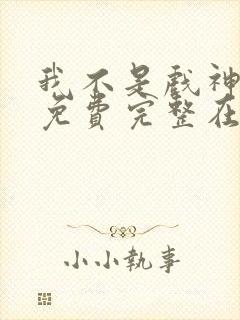 我不是戲神
免費完整在
小小執事